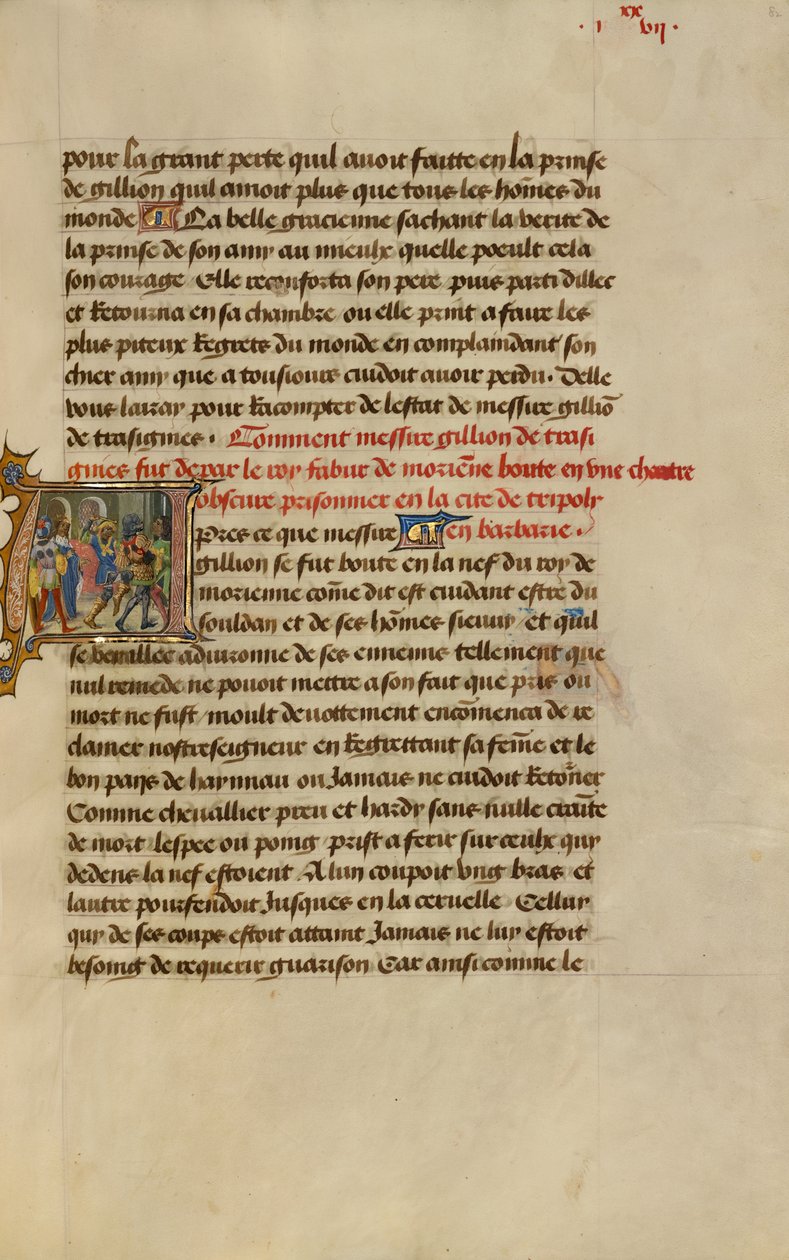 .i. xx vij.
82
pour la grant perte quil auoit faitte en la prinse
de gillion quil amoit plus que tous les hom̄es du
monde La belle gracienne sachant la verite de
la prinse de son amy au mieulx quelle poeult cela
son courage Elle reconforta son pere puis parti dillec
et Retourna en sa chambre ou elle print a faire les
plus piteux Regrets du monde en complaindant son
chier amy que a tousiours cuidoit auoir perdu. Delle
vous lairay pour Racompter de lestat de messire gilliō
de trasignies. Comment messire gillion de trasi
gnies fut de par le roy fabur de moriēne boute en vne chartre
obscure prisonnier en la cite de tripoly
Apres ce que messire en barbarie.
gillion se fut boute en la nef du roy de
morienne com̄e dit est cuidant estre du
souldan et de ses hom̄es sieuuy et quil
se veist allec aduironne de ses ennemis tellement que
nul remede ne pouoit mettre a son fait que pris ou
mort ne fust moult deuottement encom̄enca de re
clamer nostreseigneur en Regrettant sa fem̄e et le
bon pays de haynnau ou Jamais ne cuidoit Retōner
Comme cheuallier preu et hardy sans nulle crai̅te
de mort lespee ou poing prist a ferir sur ceulx quy
dedens la nef estoient A lun coupoit vng bras et
lautre pourfendoit Jusques en la ceruelle Celluy
quy de ses coups estoit attaint Jamais ne luy estoit
besoing de requerir guarison Car ainsi comme le